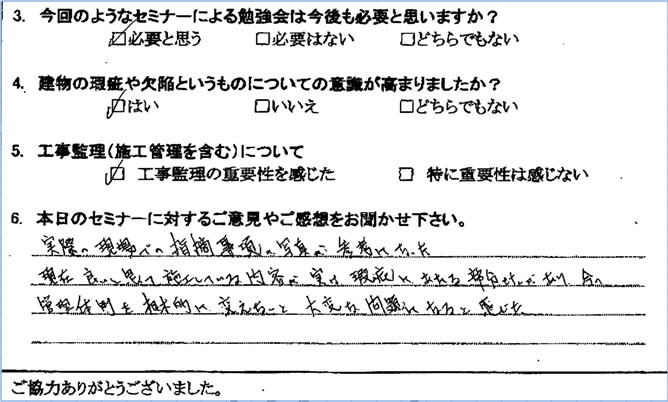 3. 今回のようなセミナーによる勉強会は今後も必要と思いますか?
☑必要と思う □必要はない □どちらでもない
4. 建物の瑕疵や欠陥というものについての意識が高まりましたか?
☑はい □いいえ □どちらでもない
5. 工事監理(施工管理を含む)について
☑ 工事監理の重要性を感じた □ 特に重要性は感じない
6. 本日のセミナーに対するご意見やご感想をお聞かせ下さい。
実際の現場での指摘事項の写真が参考になった
現在良いと思って施工している内容が実は瑕疵にあたる部分が あり、今の
管理体制を根本的に変えないと大変な問題になると感じた
ご協力ありがとうございました。